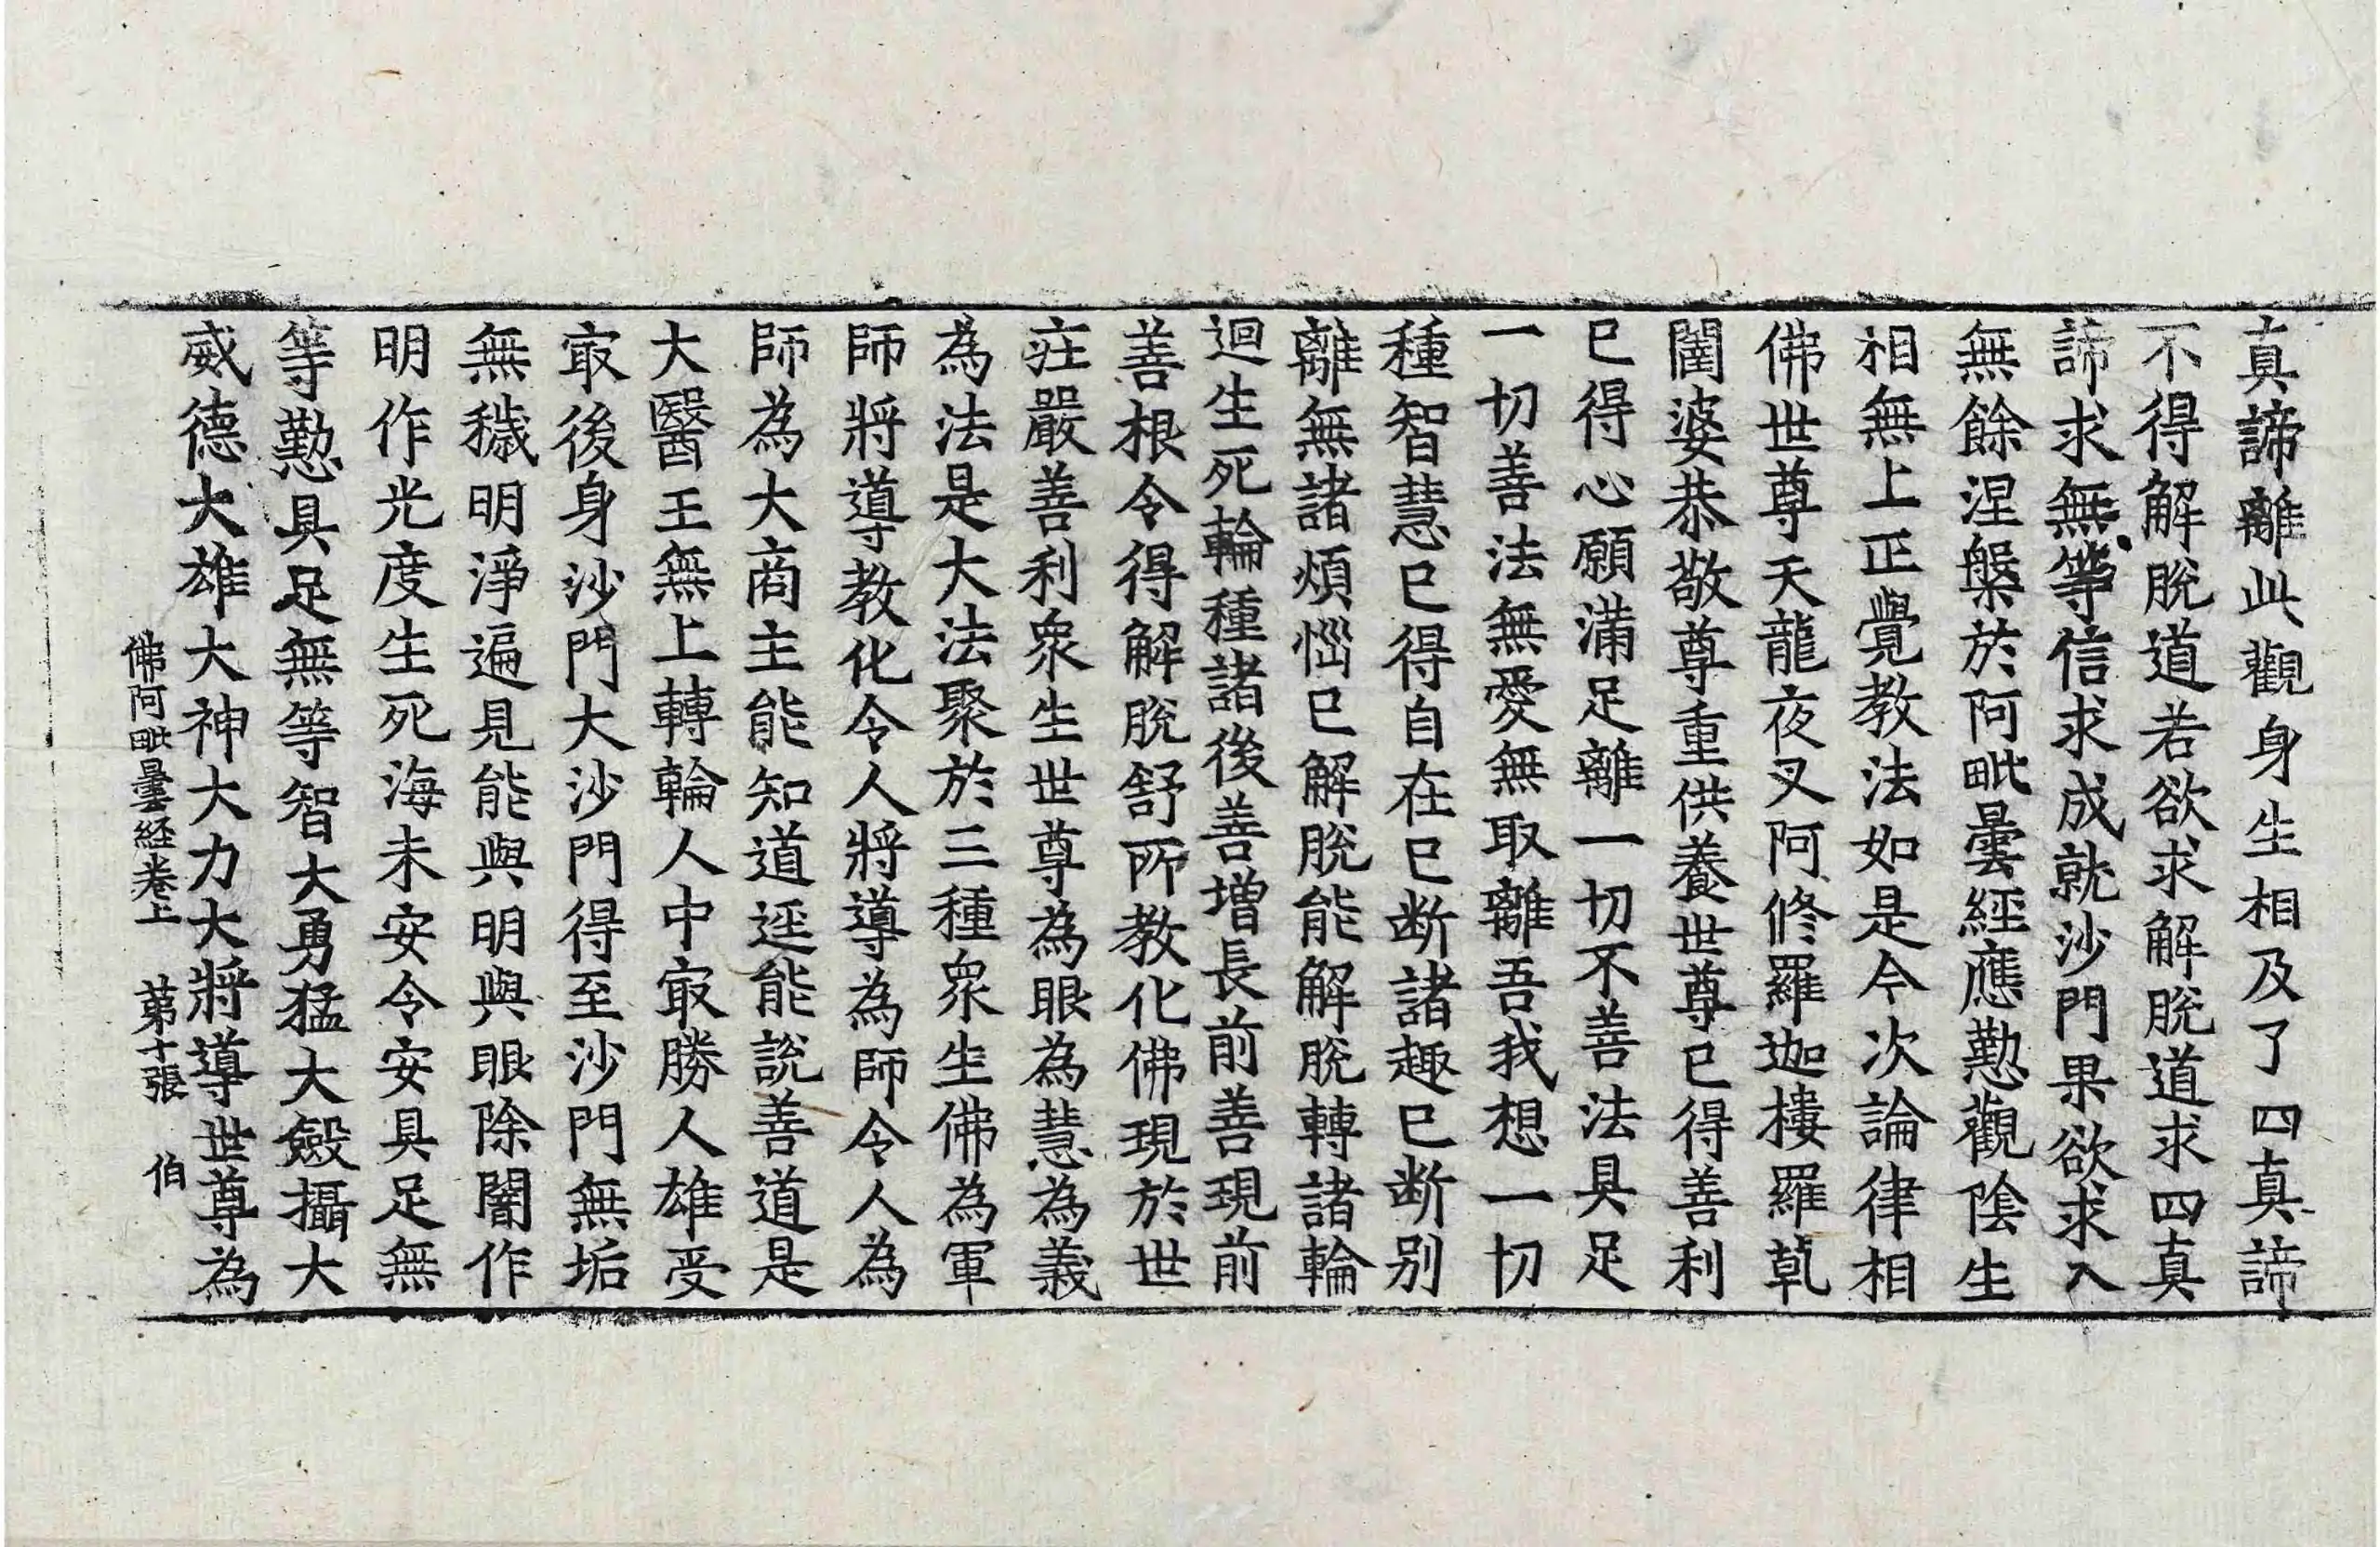 真諦離此觀身生相及了四真諦
不得解脫道若欲求解脫道求四真
諦求無等信求成就沙門果欲求入
無餘涅槃於阿毗曇經應懃觀陰生
相無上正覺教法如是今次論律相
佛世尊天龍夜叉阿修羅迦樓羅乹
闥婆恭敬尊重供養世尊已得善利
已得心願滿足離一切不善法具足
一切善法無愛無取離吾我想一切
種智慧已得自在已断諸趣已断別
離無諸煩惱已解脫能解脫轉諸輪
迴生死輪種諸後善增長前善現前
善根令得解脫舒所教化佛現於世
莊嚴善利衆生世尊為眼為慧為義
為法是大法聚於三種衆生佛為軍
師將導教化令人將導為師令人為
師為大商主能知道逕能說善道是
大醫王無上轉輪人中㝡勝人雄受
㝡後身沙門大沙門得至沙門無垢
無穢明淨遍見能與明與眼除闇作
明作光度生死海未安令安具足無
等懃具足無等智大勇猛大㷿攝大
威德大雄大神大力大將導世尊為
佛阿毗曇経卷上 苐十張 伯